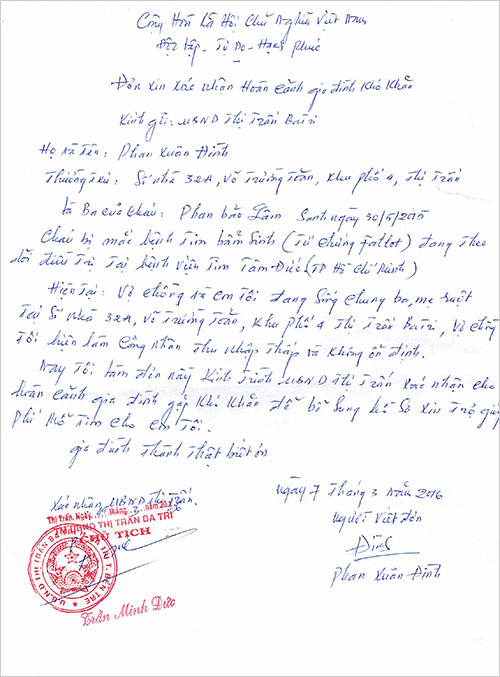 Cộng Hòa Xã Hội Chủ Nghĩa Việt Nam
Độc lập - Tự Do - Hạnh phúc
Đơn xin xác nhận Hoàn cảnh gia đình khó khăn
Kính gửi: UBND Thị Trấn Ba Tri
Họ và tên: Phan Xuân Đình
Thường trú: Số nhà 32A, Võ Trường Toản, Khu phố 4, Thị Trấn
là Ba của cháu: Phan bảo Lâm Sanh ngày 30/5/2015
Cháu bị mắc bệnh Tim bẩm Sinh (Tứ chứng Fallot) đang theo
dõi điều Trị Tại bệnh viện Tim Tâm Đức (TP Hồ Chí Minh)
Hiện Tại: Vợ chồng và em Tôi đang Sống chung ba, mẹ ruột
Tại Số nhà 32A, Võ Trường Toản, Khu phố 4 Thị Trấn Ba Tri, Vợ chồng
Tôi hiện làm công nhân thu nhập thấp và không ổn định.
Nay Tôi làm đơn này Kính Trình UBND Thị Trấn xác nhận cho
hoàn cảnh gia đình gặp khó khăn để bổ Sung hồ Sơ xin Trợ giúp
phí mổ Tim cho em Tôi.
gia đình thành thật biết ơn
Xác nhận UBND Thị Trấn.
Thị Trấn, Ngày tháng 3 năm 20
TM.UBND THỊ TRẤN BA TRI
CHỦ TỊCH
Trần Minh Đức
ngày 7 Tháng 3 năm 2016
người viết đơn
Đình
Phan Xuân Đình